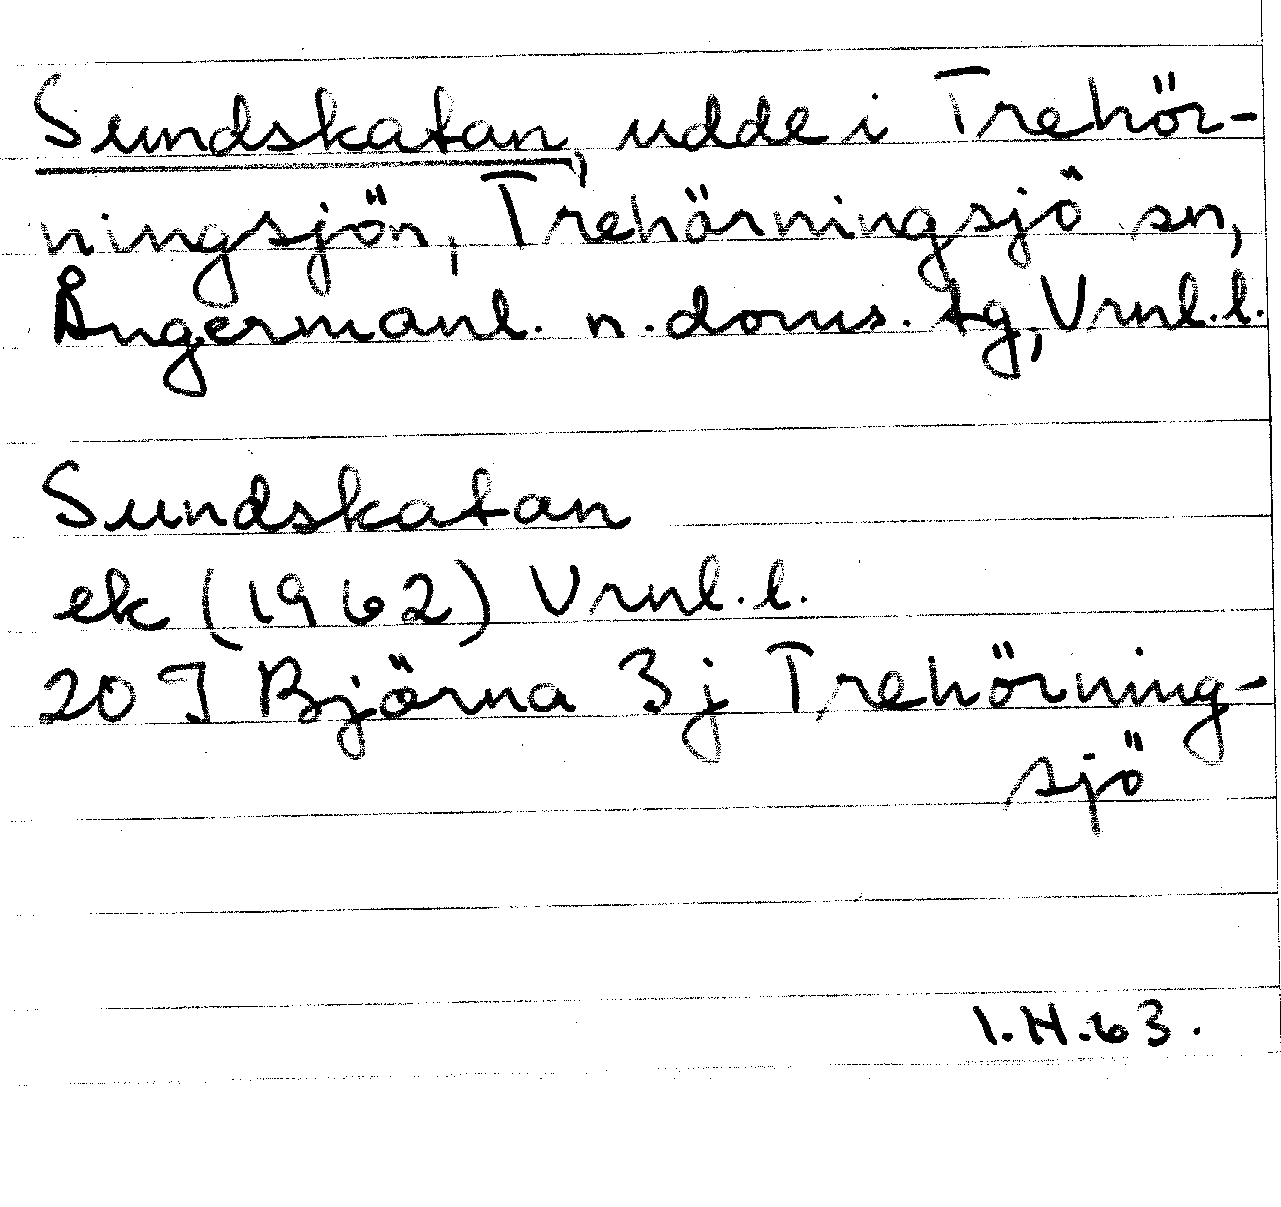 Sundskatan, udde i Trehör-
ningsjön, Trehörningsjö sn,
Ångermanl. n. doms. tg, Vrnl. l.
Sundskatan
ek (1962) Vrnl. l.
20 I Björna 3 j Trehörning-
sjö
I.H.63.